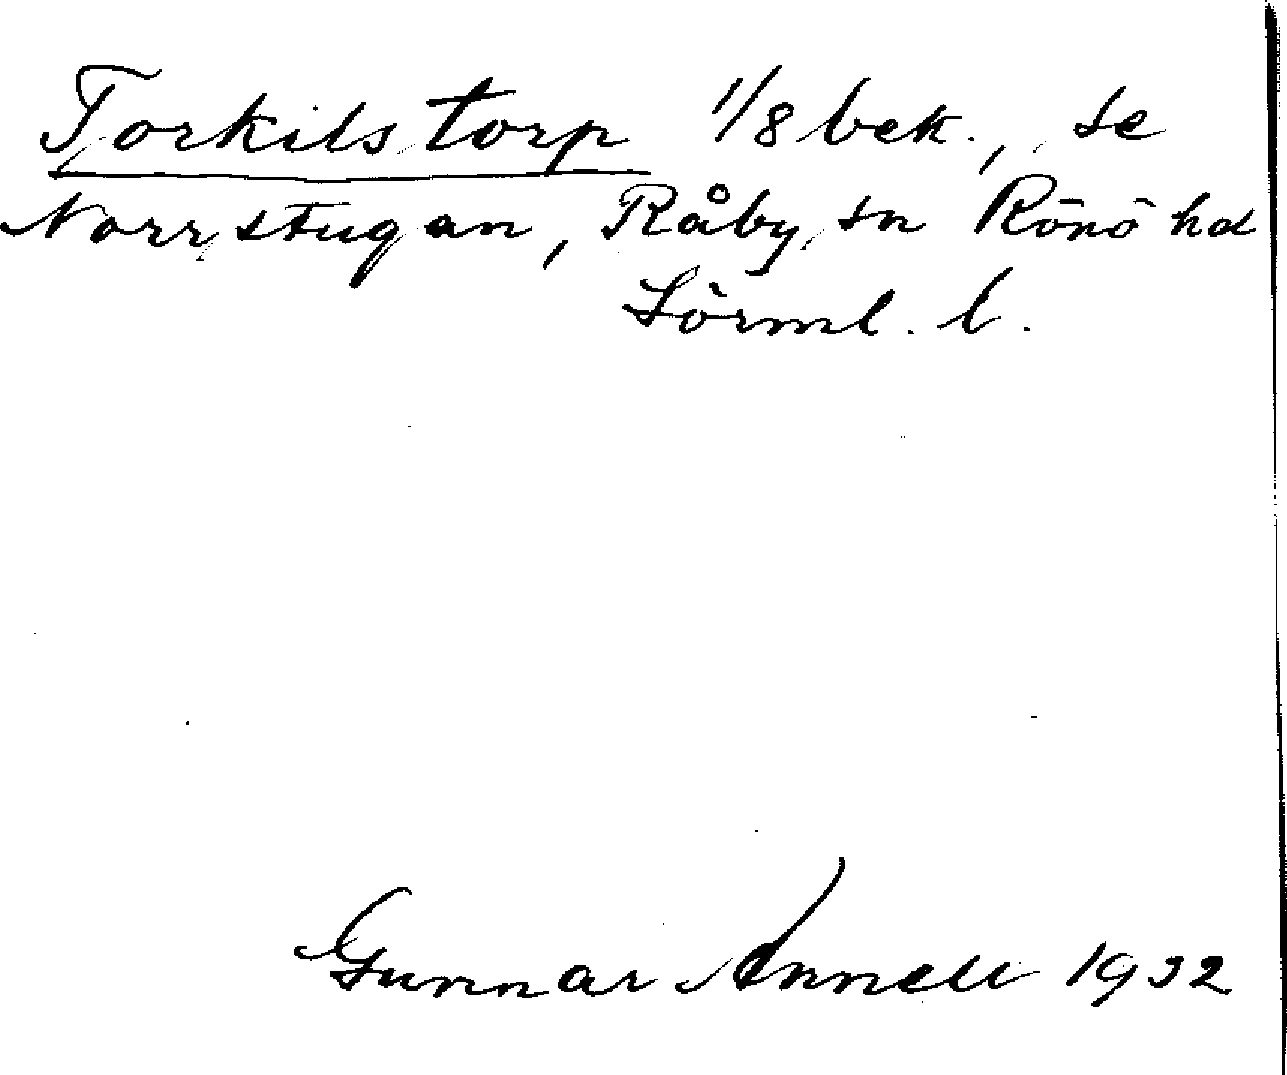 Torkilstorp 1/8 bek., se
Norrstugan, Råby sn Rönö hd
Sörml. l.
Gunnar Annell 1932